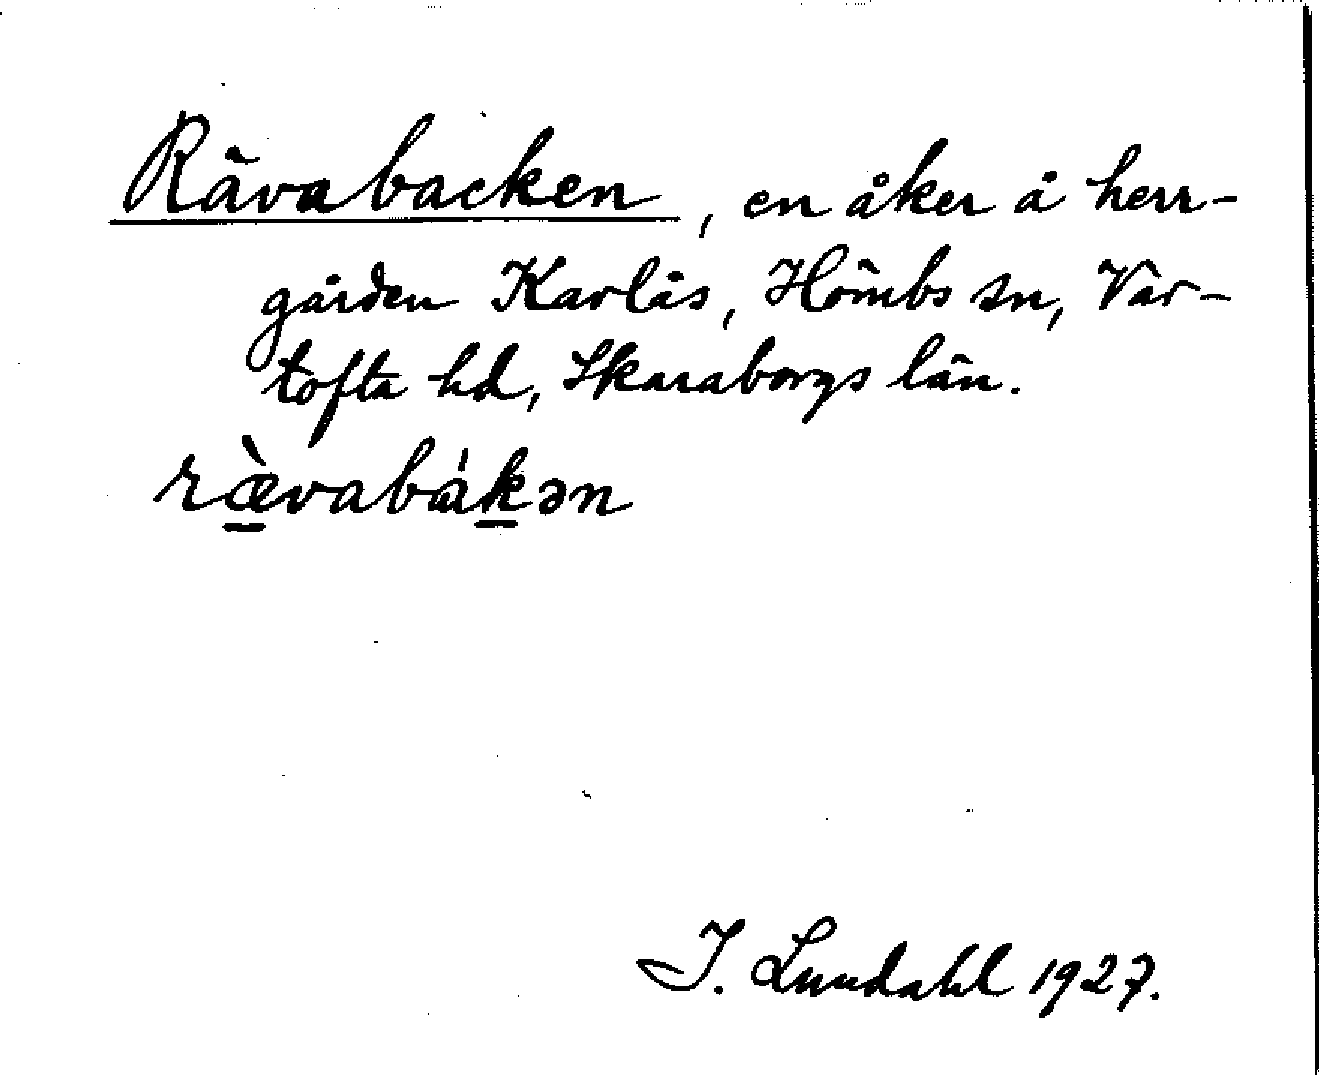 Rävabacken, en åker å herr-
gården Karlås, Hömbs sn, Var-
tofta hd, Skaraborgs län.
ræ̀vabákən
I. Lundahl 1927.